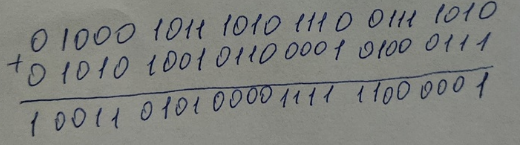 0 1000 1011 1010 1110 0111 1010
+
0 1010 1001 0110 0001 0100 0111
1 0011 0101 0000 1111 1100 0001